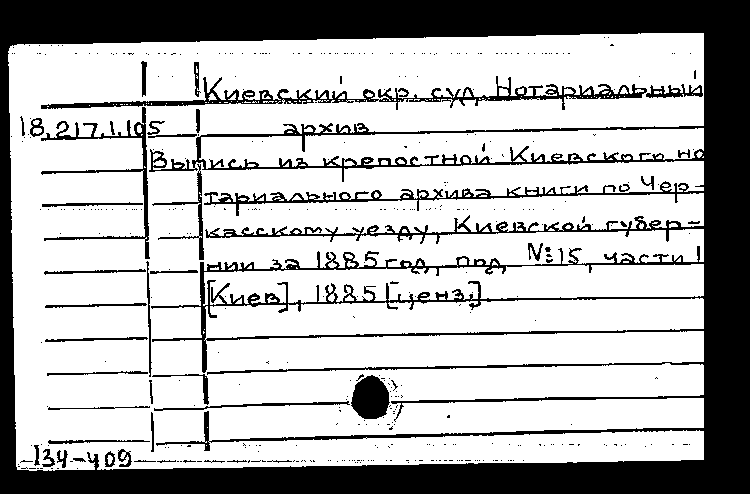 Киевский окр. суд. Нотариальный
18.217.1.105 архив
Выпись из крепостной Киевского но
тариального архива книги по Чер-
касскому уезду, Киевской губер-
нии за 1885 год, под № 15, части I
[Киев], 1885 [ценз.].
134-409